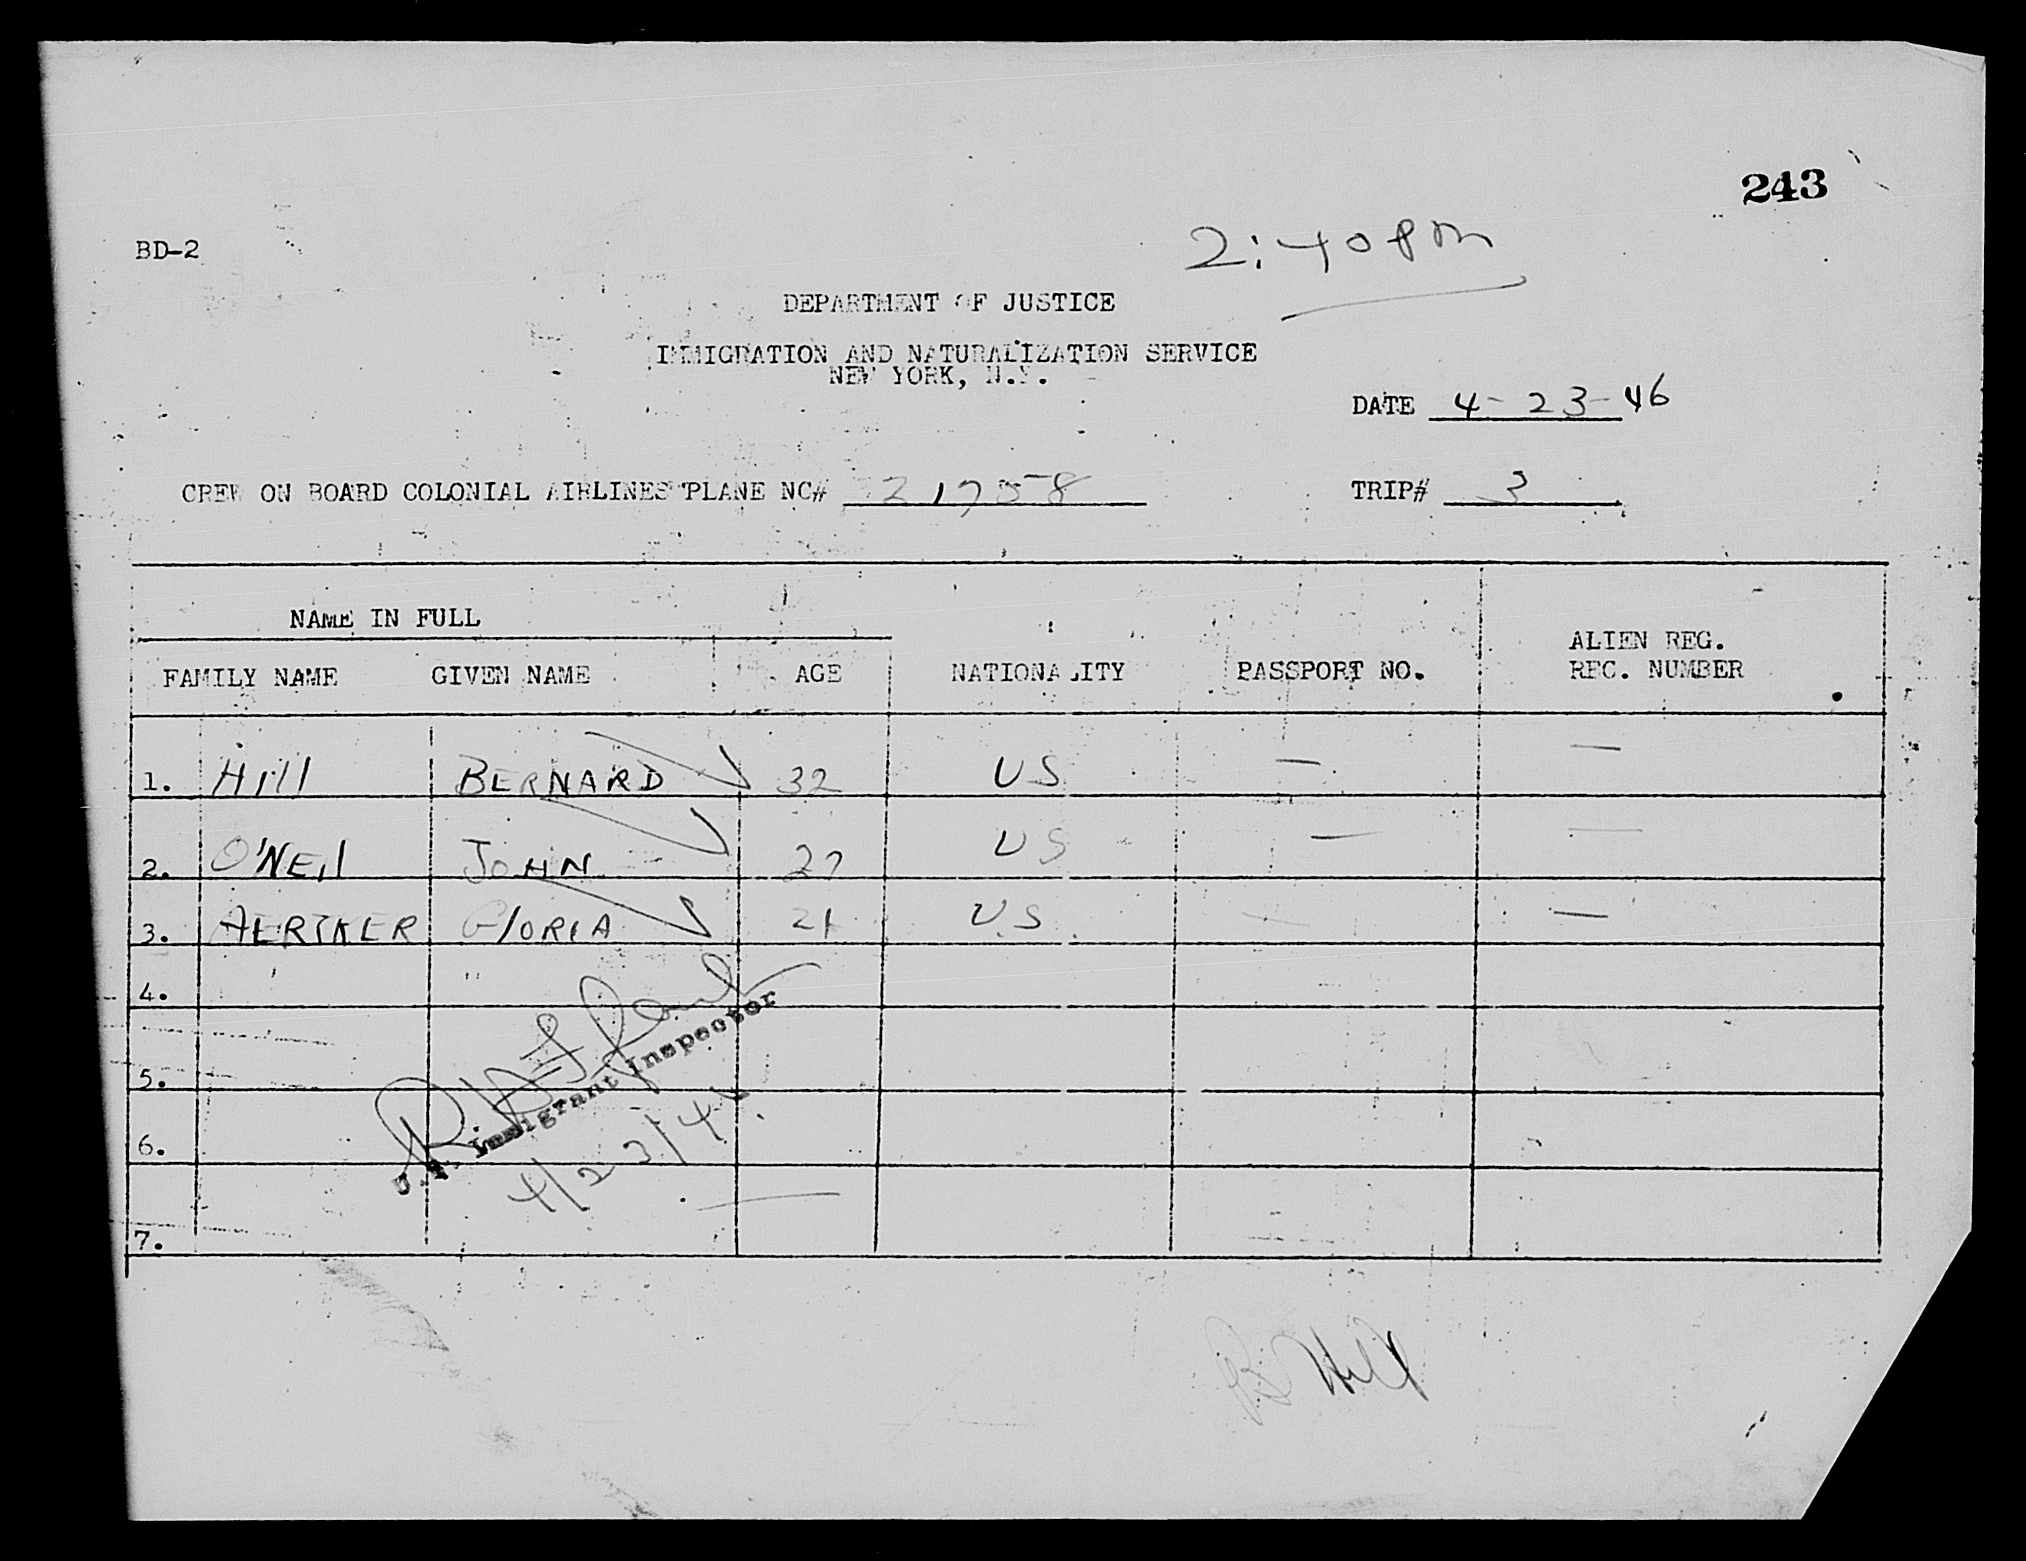 243
2:40 PM
BD-2
DEPARTMENT OF JUSTICE
IMMIGRATION AND NATURALIZATION SERVICE
NEW YORK, N.Y.
DATE 4-23-46
CREW ON BOARD COLONIAL AIRLINES PLANE NC# 21758 TRIP# 3
NAME IN FULL
FAMILY NAME GIVEN NAME AGE NATIONALITY PASSPORT NO. ALIEN REG. REC. NUMBER
1. Hill BERNARD 32 US — —
2. O'NEil JOHN 27 US — —
3. AERTKER GlORIA 21 U.S. — —
4.
5.
6.
7.
U.S. Immigrant Inspector
4/23/46
B Hill